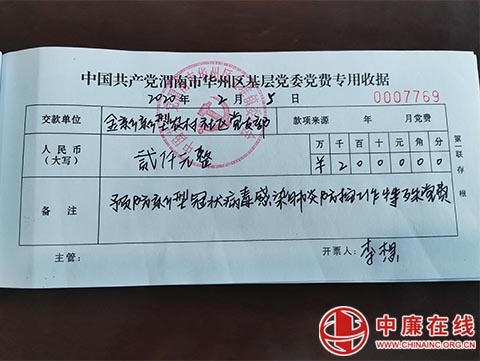 中国共产党渭南市华州区基层党委党费专用收据
2020 年 2 月 5 日 0007769
交款单位 金新新型农村社区党支部 款项来源 年 月党费
人民币(大写) 贰仟元整 万 千 百 十 元 角 分
¥ 2 0 0 0 0 0
备注 预防新型冠状病毒感染肺炎防控工作特殊党费
主管: 开票人: 李想
第一联 存根
中廉在线
WWW.CHINAINC.ORG.CN